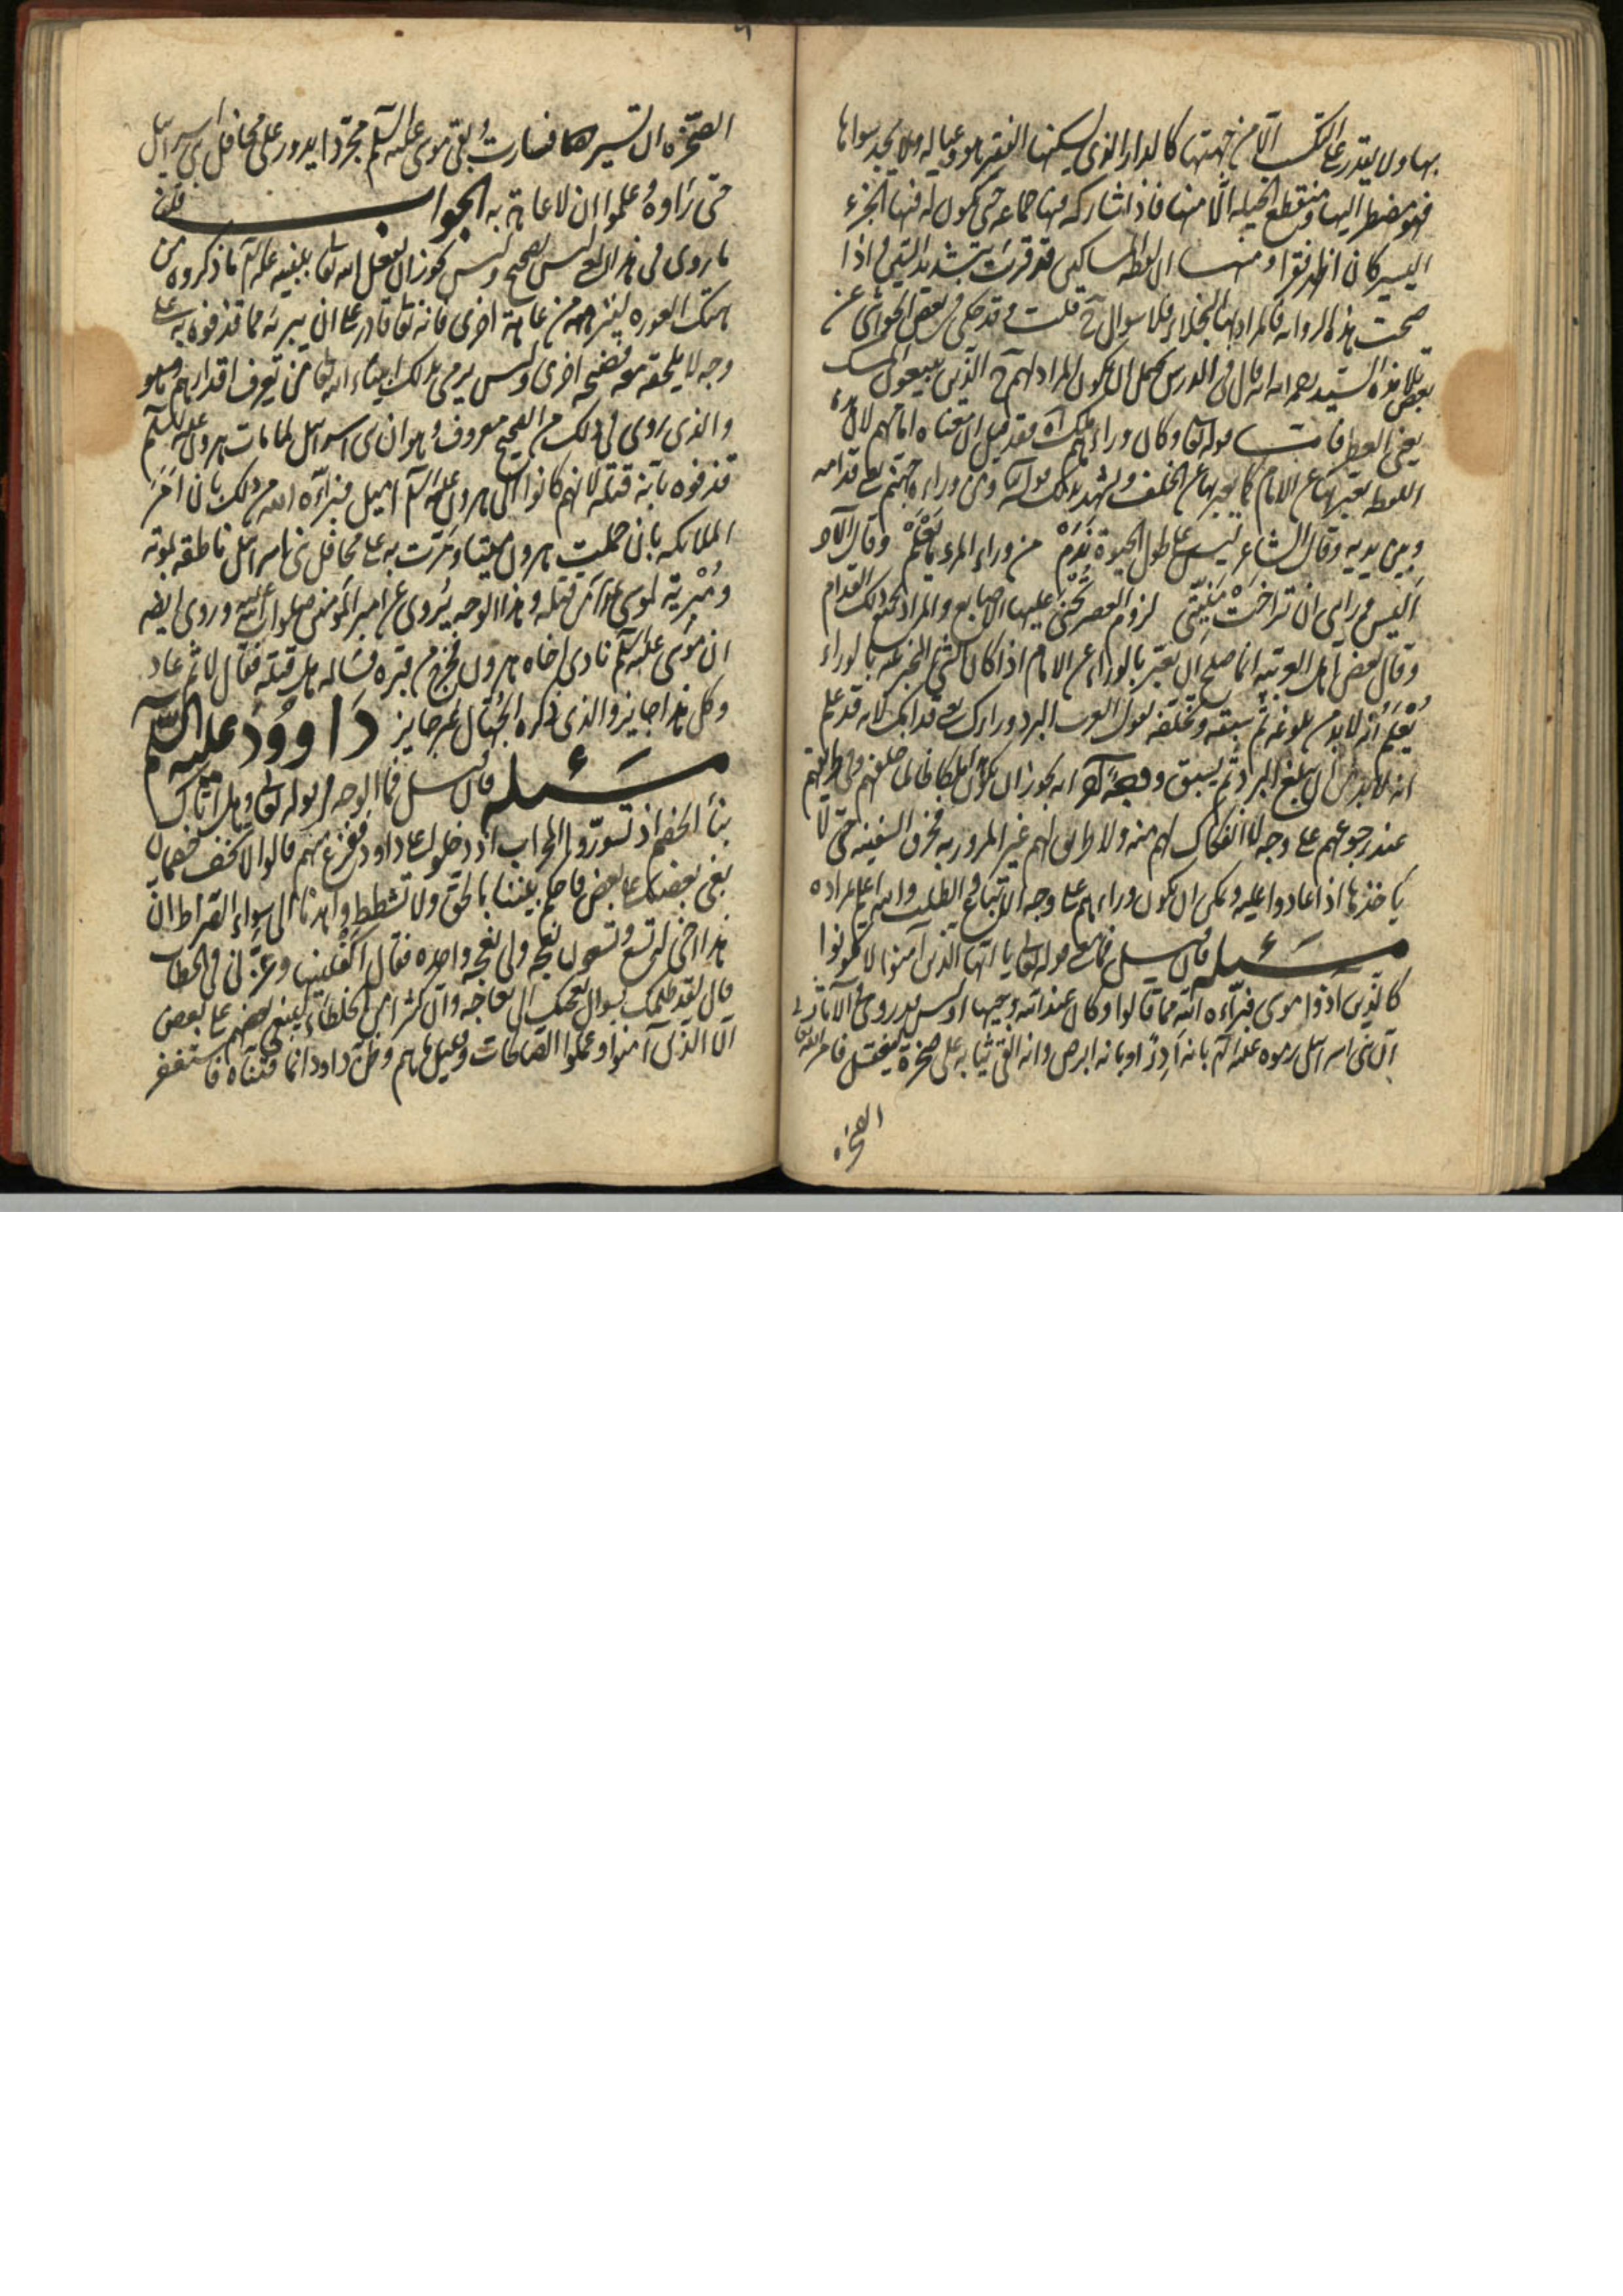 بها ولا يقدر على التكسب الا من جهتها كالدار التي يسكنها الفقير هو وعياله ولا يجد سواها
فهو مضطر اليها ومنقطع الحيلة الا منها فاذا شاركه فيها جماعة حتى يكون له فيها الجزء
اليسير كان اظهر فقرا ومنها ان لفظة مساكين قد قرئت بتشديد السين فاذا
صحت هذه الرواية فالمراد بها البخلاء فلا سؤال ح قلت وقد حكى في بعض الحواشي عن
بعض تلامذة السيد رحمه الله انه قال في الدرس يحتمل ان يكون المراد لهم ح الذين يبيعون المسك
يعني العطر فامّا قوله تعالى وكان وراءهم ملك اه فقد قيل ان معناه امامهم لان هذه
اللفظة يعبر بها عن الامام كما يعبر بها عن الخلف ويشهد بذلك قوله تعالى ومن وراءه جهنم يعني قدامه
وبين يديه وقال الشاعر ليس على طول الحيوة ندم من وراء المرء ما يعلم وقال الآخر
اليس ورائي ان تراخت منيتي لزوم العصا تحنى عليها الاصابع والمراد بجميع ذلك القدام
وقال بعض اهل العربية انما صلح ان يعبر بالوراء عن الامام اذا كان الشيء المخبر عنه بالوراء
يعلم انه لابد من بلوغه ثم سبقه وتخلفه تقول العرب البرد وراءك يعني قدامك لانه قد علم
انه لابد من ان يبلغ البرد ثم يسبق ووجه آخر انه يجوز ان يكون ملكا ظالما خلفهم وفي طريقهم
عند رجوعهم على وجه لا انفكاك لهم منه ولا طريق لهم غير المرور به فخرق السفينة حتى لا
ياخذها اذا عادوا عليه ويمكن ان يكون وراءهم على وجه الاتباع والطلب والله اعلم بمراده
مسئله فان سئل فما معنى قوله تعالى يا ايها الذين آمنوا لا تكونوا
كالذين آذوا موسى فبرّاه الله مما قالوا وكان عند الله وجيها اوليس قد روى في الآثار
ان بني اسرائيل رموه عليه السلم بانه آدر او بانه ابرص وانه القى ثيابه على صخرة ليغتسل فامر الله تعالى
الصخرة
الصخرة ان تسير هما فسارت وبقى موسى عليه السلم مجردا يدور على محافل بني اسرائيل
حتى راوه وعلموا ان لا عاهة به الجواب قلنا
ما روى في هذا المعنى ليس بصحيح وليس يجوز ان يفعل الله تعالى بنبيه عليه السلم ما ذكروه من
هتك العورة لينزهه من عاهة اخرى فانه تعالى قادر على ان يبرئه مما قذفوه به على
وجه لا يلحقه معه فضيحة اخرى وليس يرمى بذلك انبياء الله تعالى من يعرف اقدارهم
والذي روى في ذلك من الصحيح معروف وهو ان بني اسرائيل لما مات هرون عليه السلم
قذفوه بانه قتله لانهم كانوا الى هرون عليه السلم اميل فبرّاه الله من ذلك بان امر
الملائكة بان حملت هرون ميتا ومرّت به على محافل بني اسرائيل ناطقة بموته
ومُبْرِئة لموسى عليه السلم من قتله وهذا الوجه يروى عن امير المؤمنين صلوات الله عليه وروى ايضا
ان موسى عليه السلم نادى اخاه هرون فخرج من قبره فساله هل قتله فقال لا ثم عاد
وكل هذا جايز والذي ذكره الجهال غير جايز داوود عليه السلم
مسئله فان سئل فما الوجه في قوله تعالى وهل اتاك
نبأ الخصم اذ تسوّروا المحراب اذ دخلوا على داود ففزع منهم قالوا لا تخف خصمان
بغى بعضنا على بعض فاحكم بيننا بالحق ولا تشطط واهدنا الى سواء الصراط ان
هذا اخي له تسع وتسعون نعجة ولي نعجة واحدة فقال اكفلنيها وعزّني في الخطاب
قال لقد ظلمك بسؤال نعجتك الى نعاجه وان كثيرا من الخلطاء ليبغي بعضهم على بعض
الا الذين آمنوا وعملوا الصالحات وقليل ما هم وظن داود انما فتنّاه فاستغفر